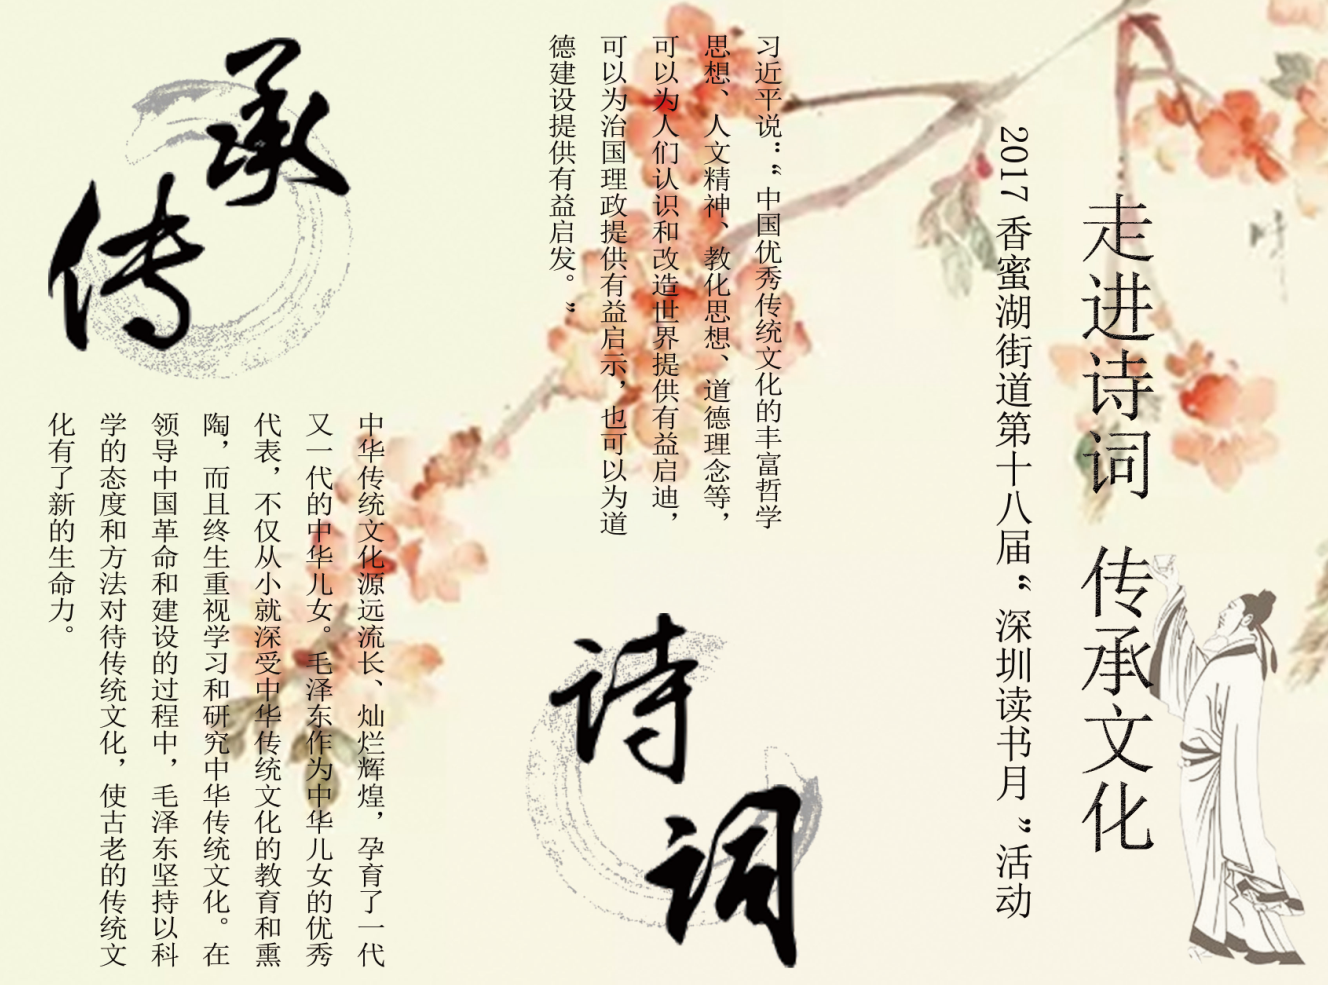 走进诗词 传承文化
2017 香蜜湖街道第十八届“深圳读书月”活动
习近平说：“中国优秀传统文化的丰富哲学
思想、人文精神、教化思想、道德理念等，
可以为人们认识和改造世界提供有益启迪，
可以为治国理政提供有益启示，也可以为道
德建设提供有益启发。”
诗词
承传
中华传统文化源远流长、灿烂辉煌，孕育了一代
又一代的中华儿女。毛泽东作为中华儿女的优秀
代表，不仅从小就深受中华传统文化的教育和熏
陶，而且终生重视学习和研究中华传统文化。在
领导中国革命和建设的过程中，毛泽东坚持以科
学的态度和方法对待传统文化，使古老的传统文
化有了新的生命力。